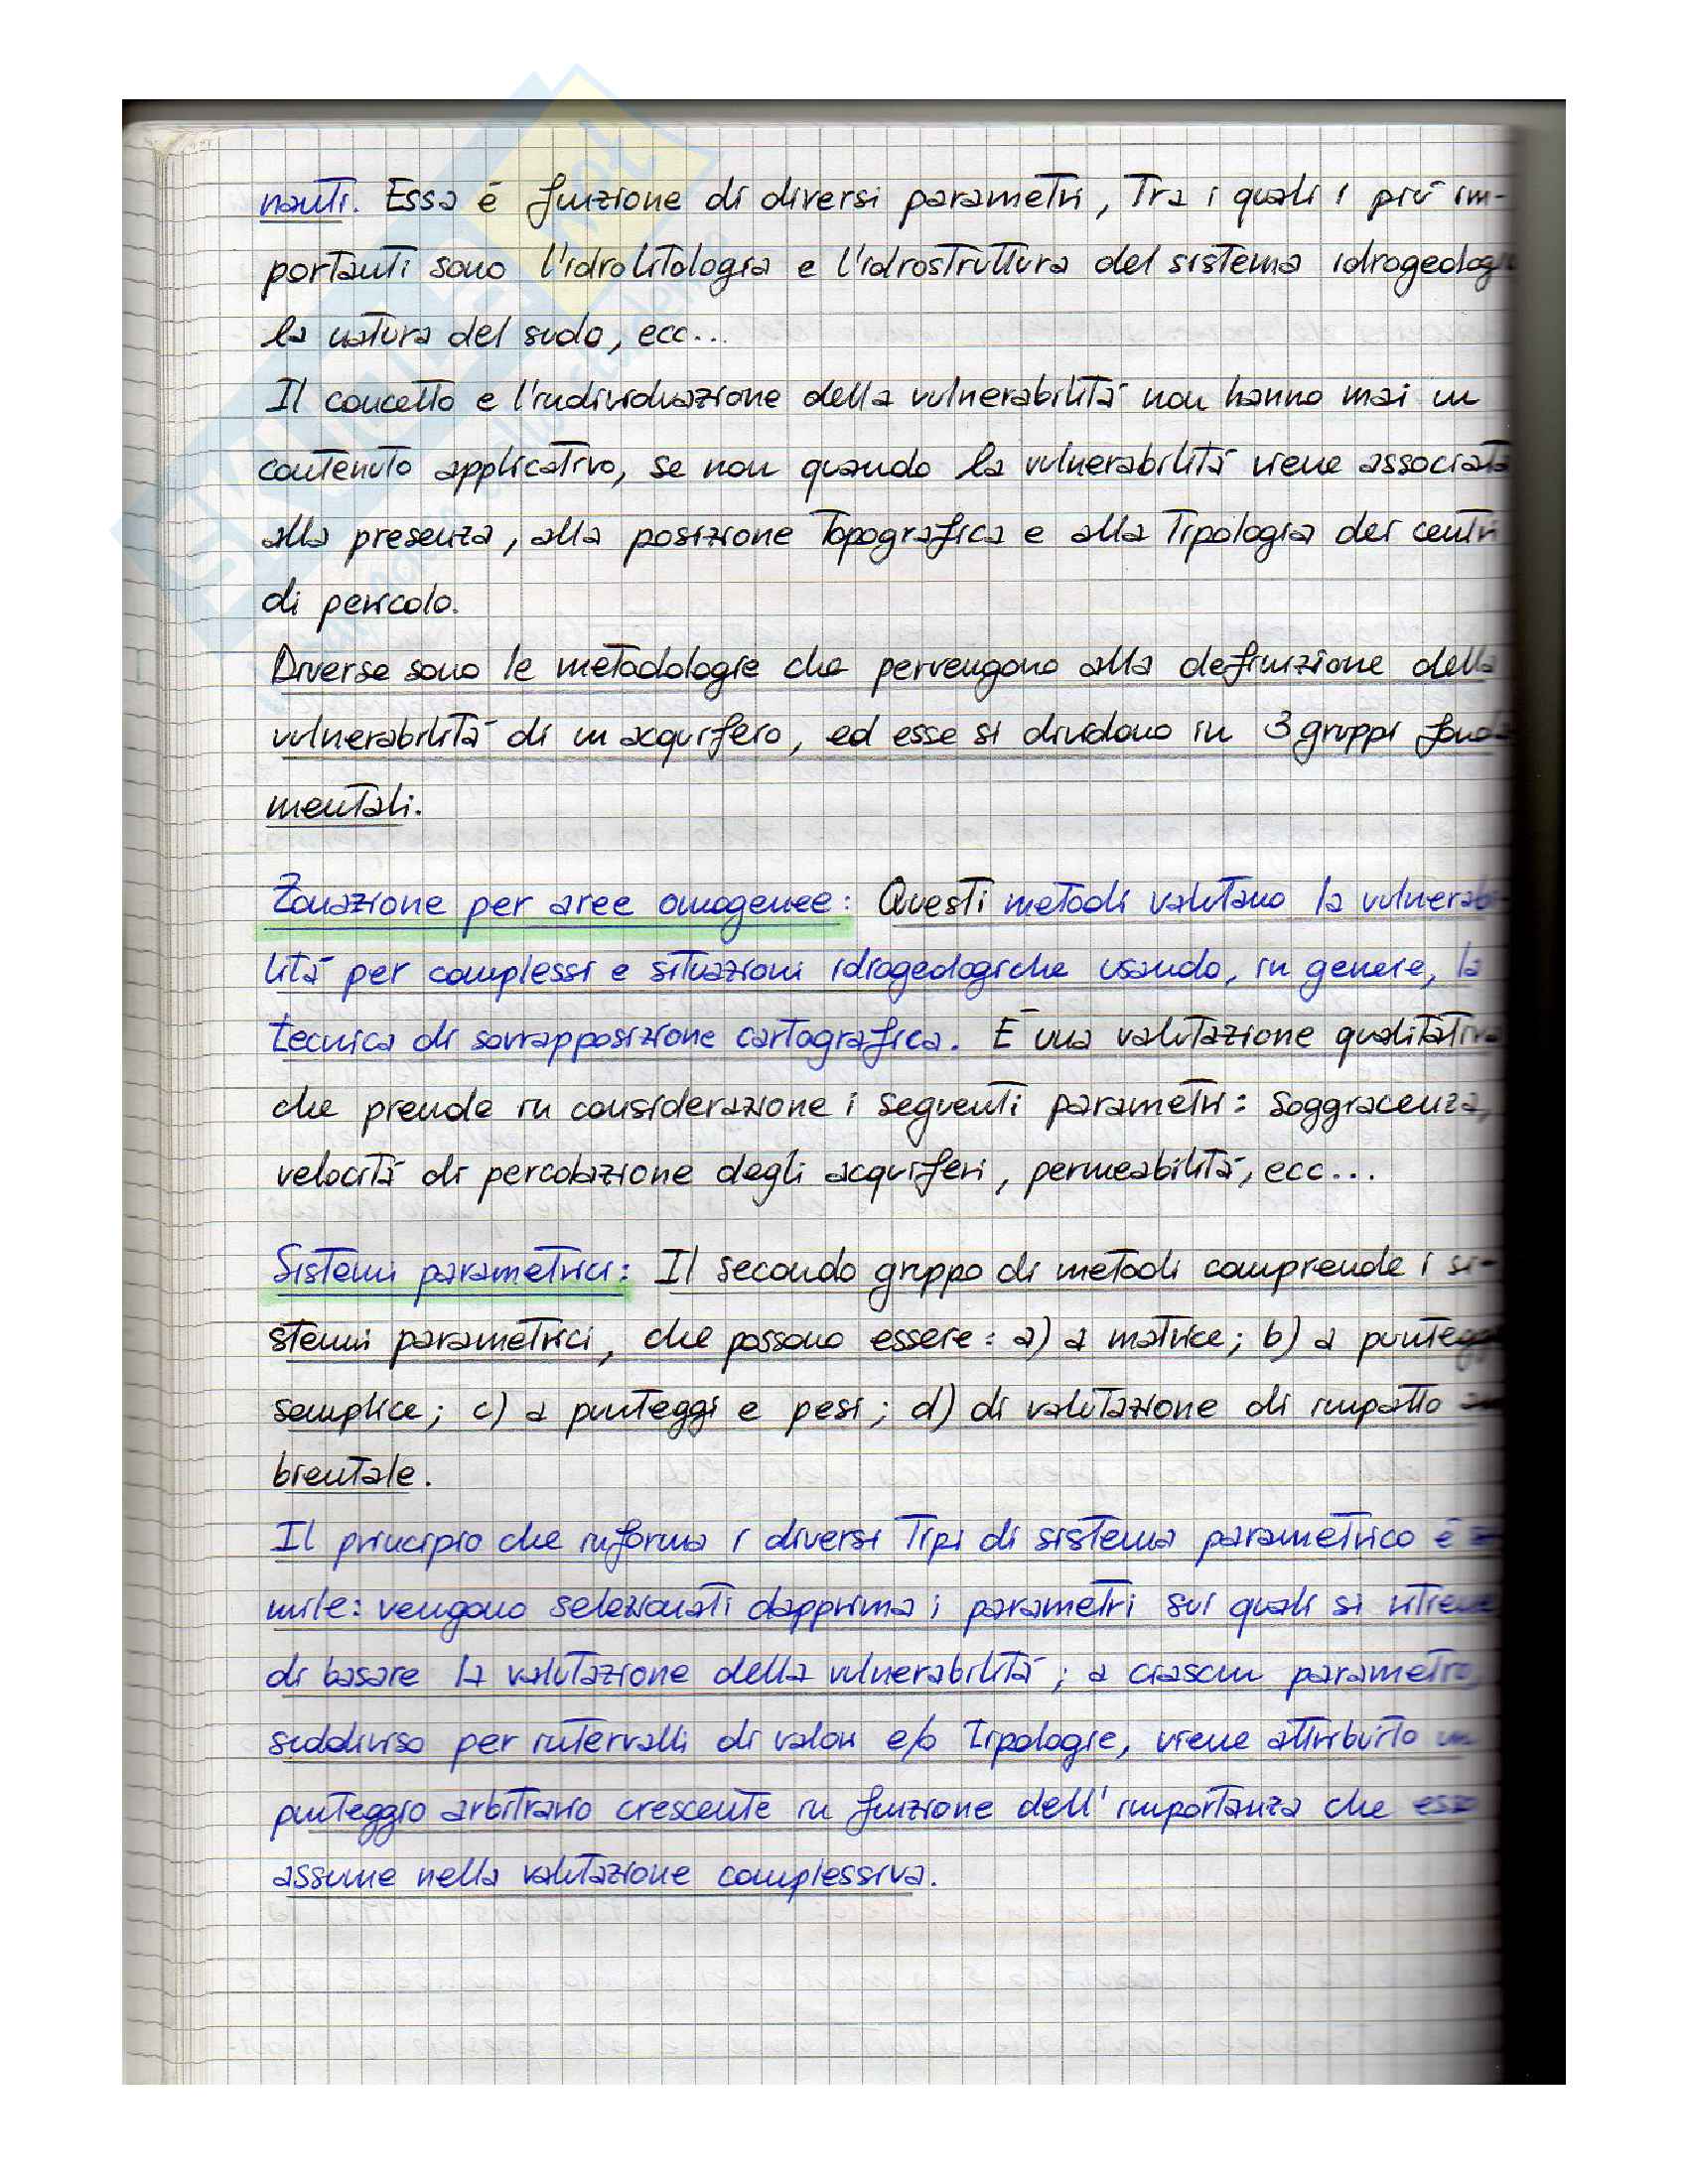 nanti. Essa è funzione di diversi parametri, tra i quali i più im-
portanti sono l'idrolitologia e l'idrostruttura del sistema
la natura del suolo, ecc...
Il concetto e l'individuazione della vulnerabilità non hanno mai un
contenuto applicativo, se non quando la vulnerabilità viene associata
alla presenza, alla posizione topografica e alla tipologia dei centri
di pericolo.
Diverse sono le metodologie che pervengono alla definizione della
vulnerabilità di un acquifero, ed esse si dividono in 3 gruppi fonda
mentali.
Zonazione per aree omogenee: Questi metodi valutano la vulnerabi
lità per complessi e situazioni idrogeologiche usando, in genere, la
tecnica di sovrapposizione cartografica. È una valutazione qualitativa
che prende in considerazione i seguenti parametri: soggiacenza,
velocità di percolazione degli acquiferi, permeabilità, ecc...
Sistemi parametrici: Il secondo gruppo di metodi comprende i si-
stemi parametrici, che possono essere: a) a matrice; b) a
semplice; c) a punteggi e pesi; d) di valutazione di impatto
bientale.
Il principio che informa i diversi tipi di sistema parametrico è
mile: vengono selezionati dapprima i parametri sui quali si ritiene
di basare la valutazione della vulnerabilità; a ciascun parametro,
suddiviso per intervalli di valori e/o tipologie, viene attribuito un
punteggio arbitrario crescente in funzione dell'importanza che esso
assume nella valutazione complessiva.
SKUOLA.net